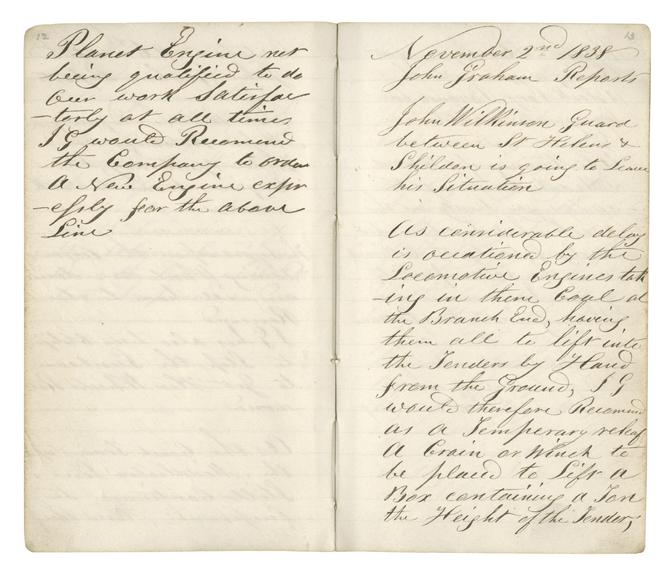 12
Planet Engine not
being qualified to do
our work Satisfac
-torly at all times
J G would Recomend
the Company to order
A New Engine expr
-essly for the above
Line
13
November 2nd 1838
John Graham Reports
John Wilkinson Guard
between St Helens &
Shildon is going to Leave
his Situation
As considerable delay
is ocationed by the
Locomotive Engines tak
-ing in there Coal at
the Branch End, having
them all to lift into
the Tenders by Hand
from the Ground, J G
would therefore Recomend
as a Temperary releaf
A Crain or Winch to
be placed to Lift a
Box containing a Ton
the Height of the Tender,